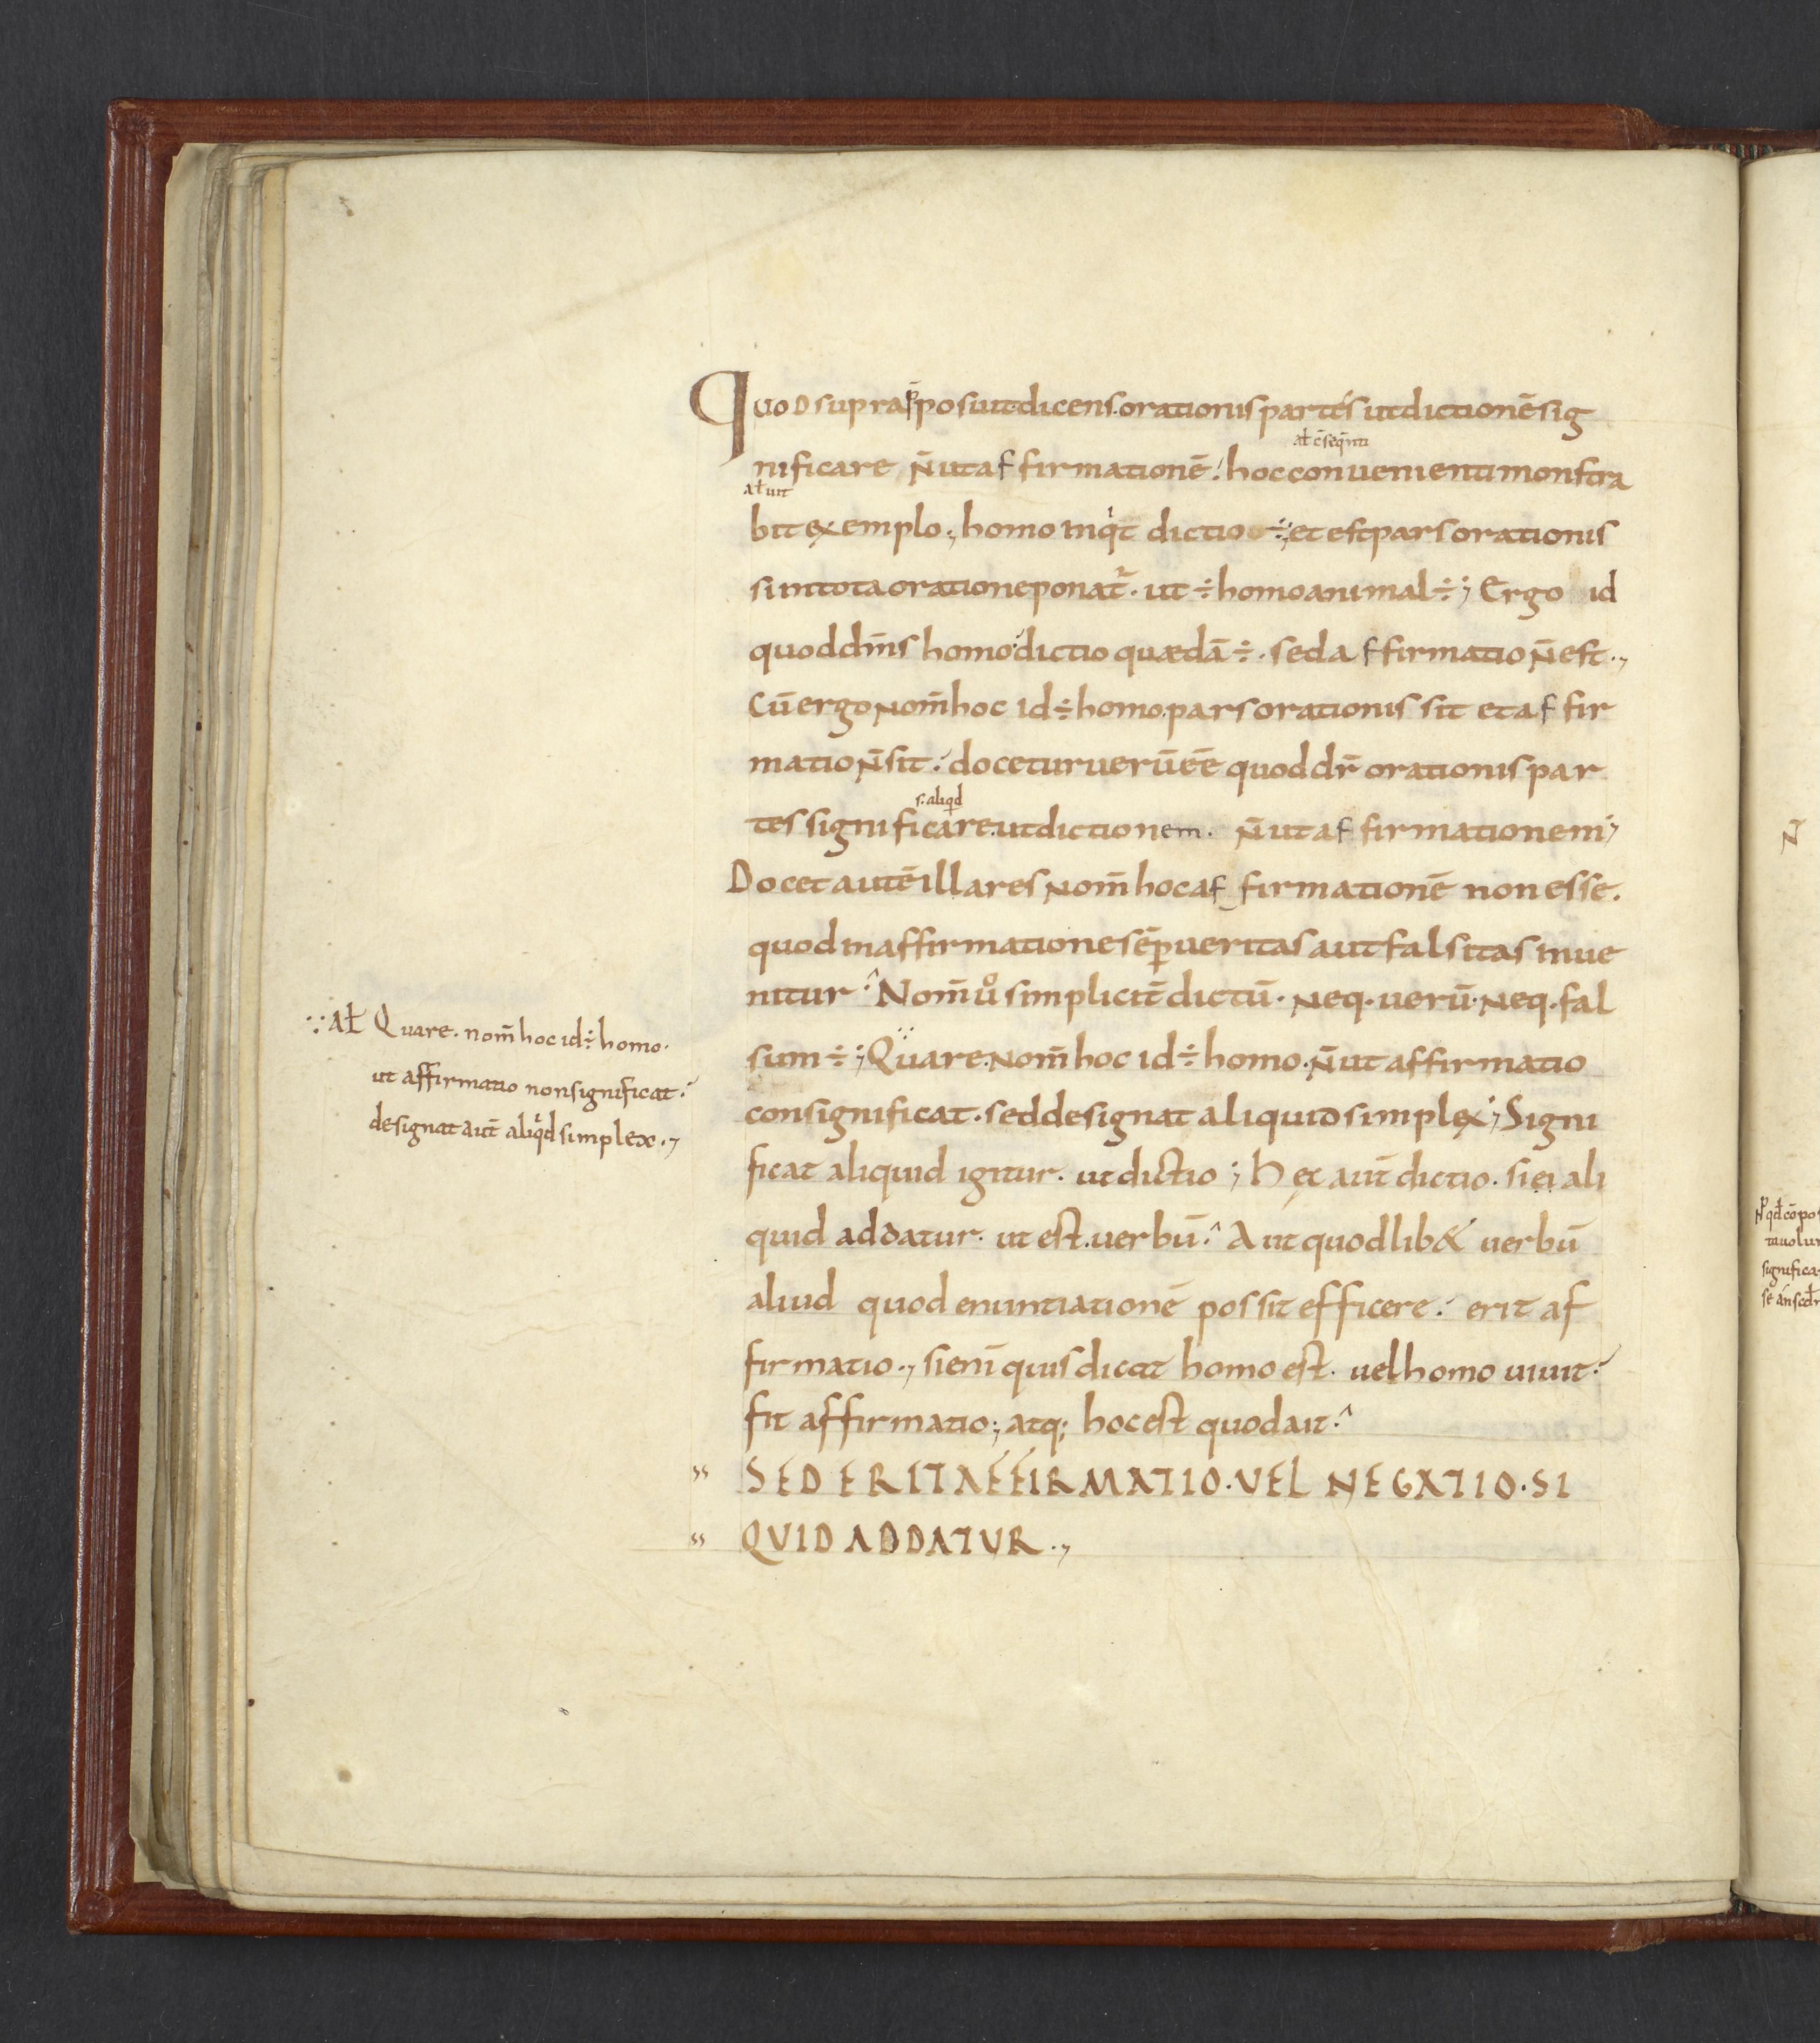 Quod supra p̄posuit dicens. orationis partes ut dictionē sig
al̄ c̄seq̄nti
nificare n̄ ut affirmationē. hoc convenienti monstra
al̄ uit
bit exemplo; homo inqͥt dictio ÷; et est pars orationis
si in tota oratione ponat̄. ut ÷ homo animal ÷; Ergo id
quod dm̄s homo dictio quædā ÷. sed affirmatio n̄ est.,
Cū ergo nom̄ hoc id ÷ homo. pars orationis sit et affir
matio n̄ sit. docetur uerū ēē quod dr̄ orationis par
s. aliqd
tes significare. ut dictionem. n̄ ut affirmationem;
Docet autē illa res nom̄ hoc affirmationē non esse.
quod in affirmatione sēp ueritas aut falsitas inue
nitur. Nom̄ uͦ simplicit̄ dictū. neq. uerū. neq. fal
sum ÷; Quare. nom̄ hoc id ÷ homo. n̄ ut affirmatio
consignificat. sed designat aliquid simplex; Signi
ficat aliquid igitur. ut dictio; Hęc aut̄ dictio. si ei ali
quid addatur. ut est. uerbū. Aut quodlib& uerbū
aliud quod enuntiationē possit efficere. erit af
firmatio., si eni quis dicat homo est. uel homo uiuit.
fit affirmatio; atq; hoc est quod ait.
SED ERIT AFFIRMATIO. VEL NEGATIO. SI
QUID ADDATUR.,
al̄ Quare. nom̄ hoc id ÷ homo.
ut affirmatio non significat.
designat aut̄ aliqͥd simplex.,
N̄